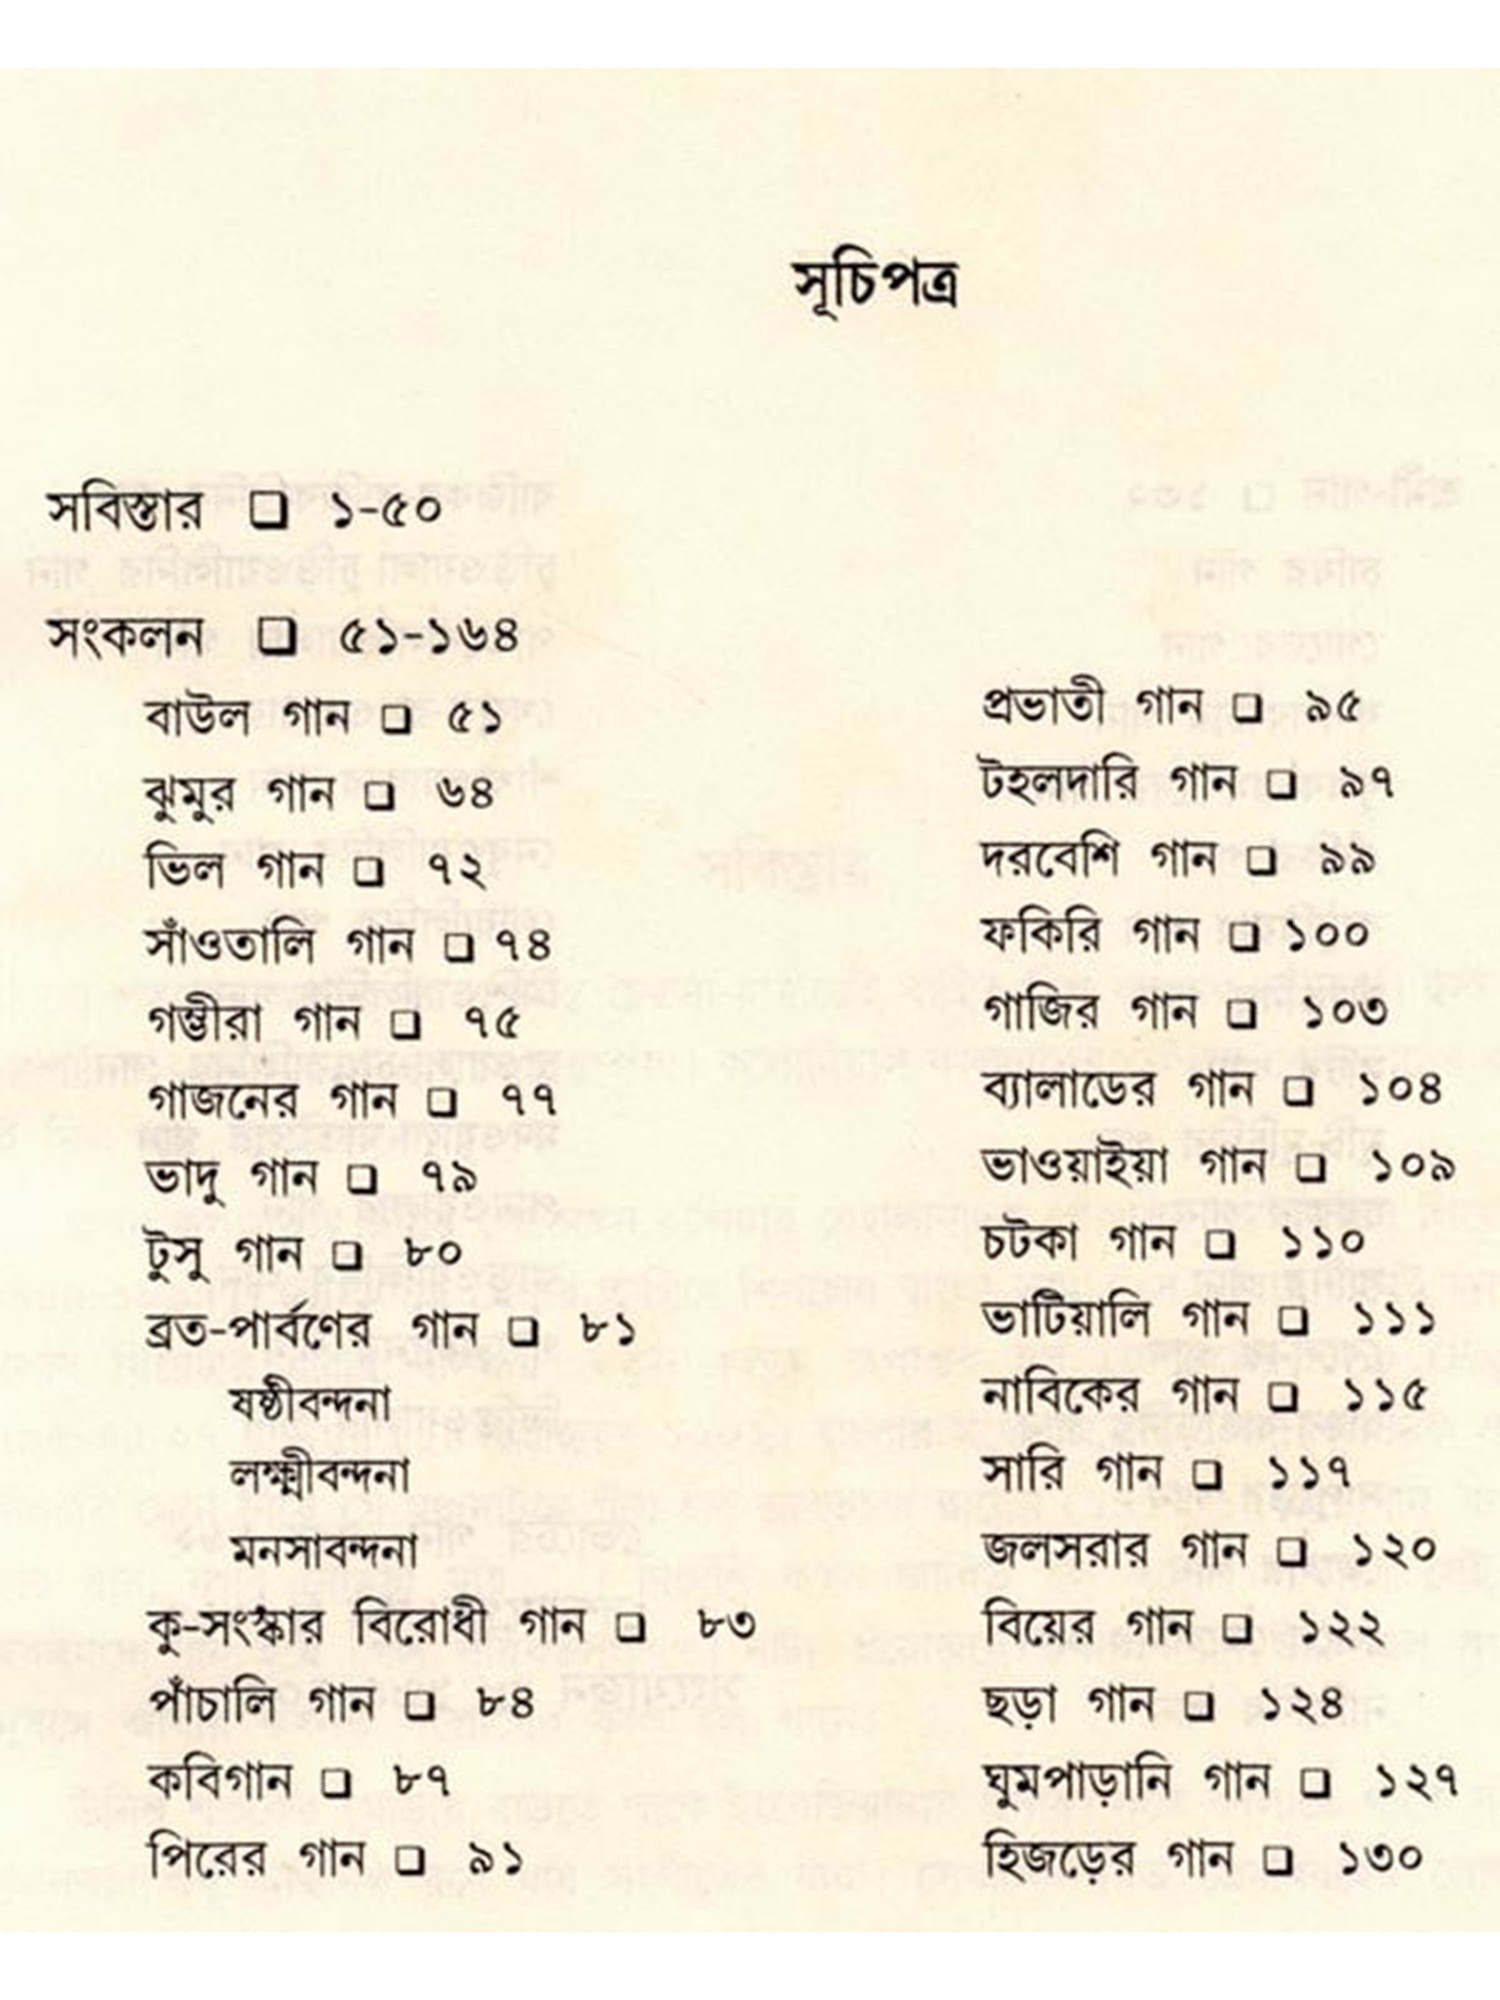 সূচিপত্র
সবিস্তার ❑ ১-৫০
সংকলন ❑ ৫১-১৬৪
বাউল গান ❑ ৫১
ঝুমুর গান ❑ ৬৪
ভিল গান ❑ ৭২
সাঁওতালি গান ❑ ৭৪
গম্ভীরা গান ❑ ৭৫
গাজনের গান ❑ ৭৭
ভাদু গান ❑ ৭৯
টুসু গান ❑ ৮০
ব্রত-পার্বণের গান ❑ ৮১
ষষ্ঠীবন্দনা
লক্ষ্মীবন্দনা
মনসাবন্দনা
কু-সংস্কার বিরোধী গান ❑ ৮৩
পাঁচালি গান ❑ ৮৪
কবিগান ❑ ৮৭
পিরের গান ❑ ৯১
প্রভাতী গান ❑ ৯৫
টহলদারি গান ❑ ৯৭
দরবেশি গান ❑ ৯৯
ফকিরি গান ❑ ১০০
গাজির গান ❑ ১০৩
ব্যালাডের গান ❑ ১০৪
ভাওয়াইয়া গান ❑ ১০৯
চটকা গান ❑ ১১০
ভাটিয়ালি গান ❑ ১১১
নাবিকের গান ❑ ১১৫
সারি গান ❑ ১১৭
জলসরার গান ❑ ১২০
বিয়ের গান ❑ ১২২
ছড়া গান ❑ ১২৪
ঘুমপাড়ানি গান ❑ ১২৭
হিজড়ের গান ❑ ১৩০